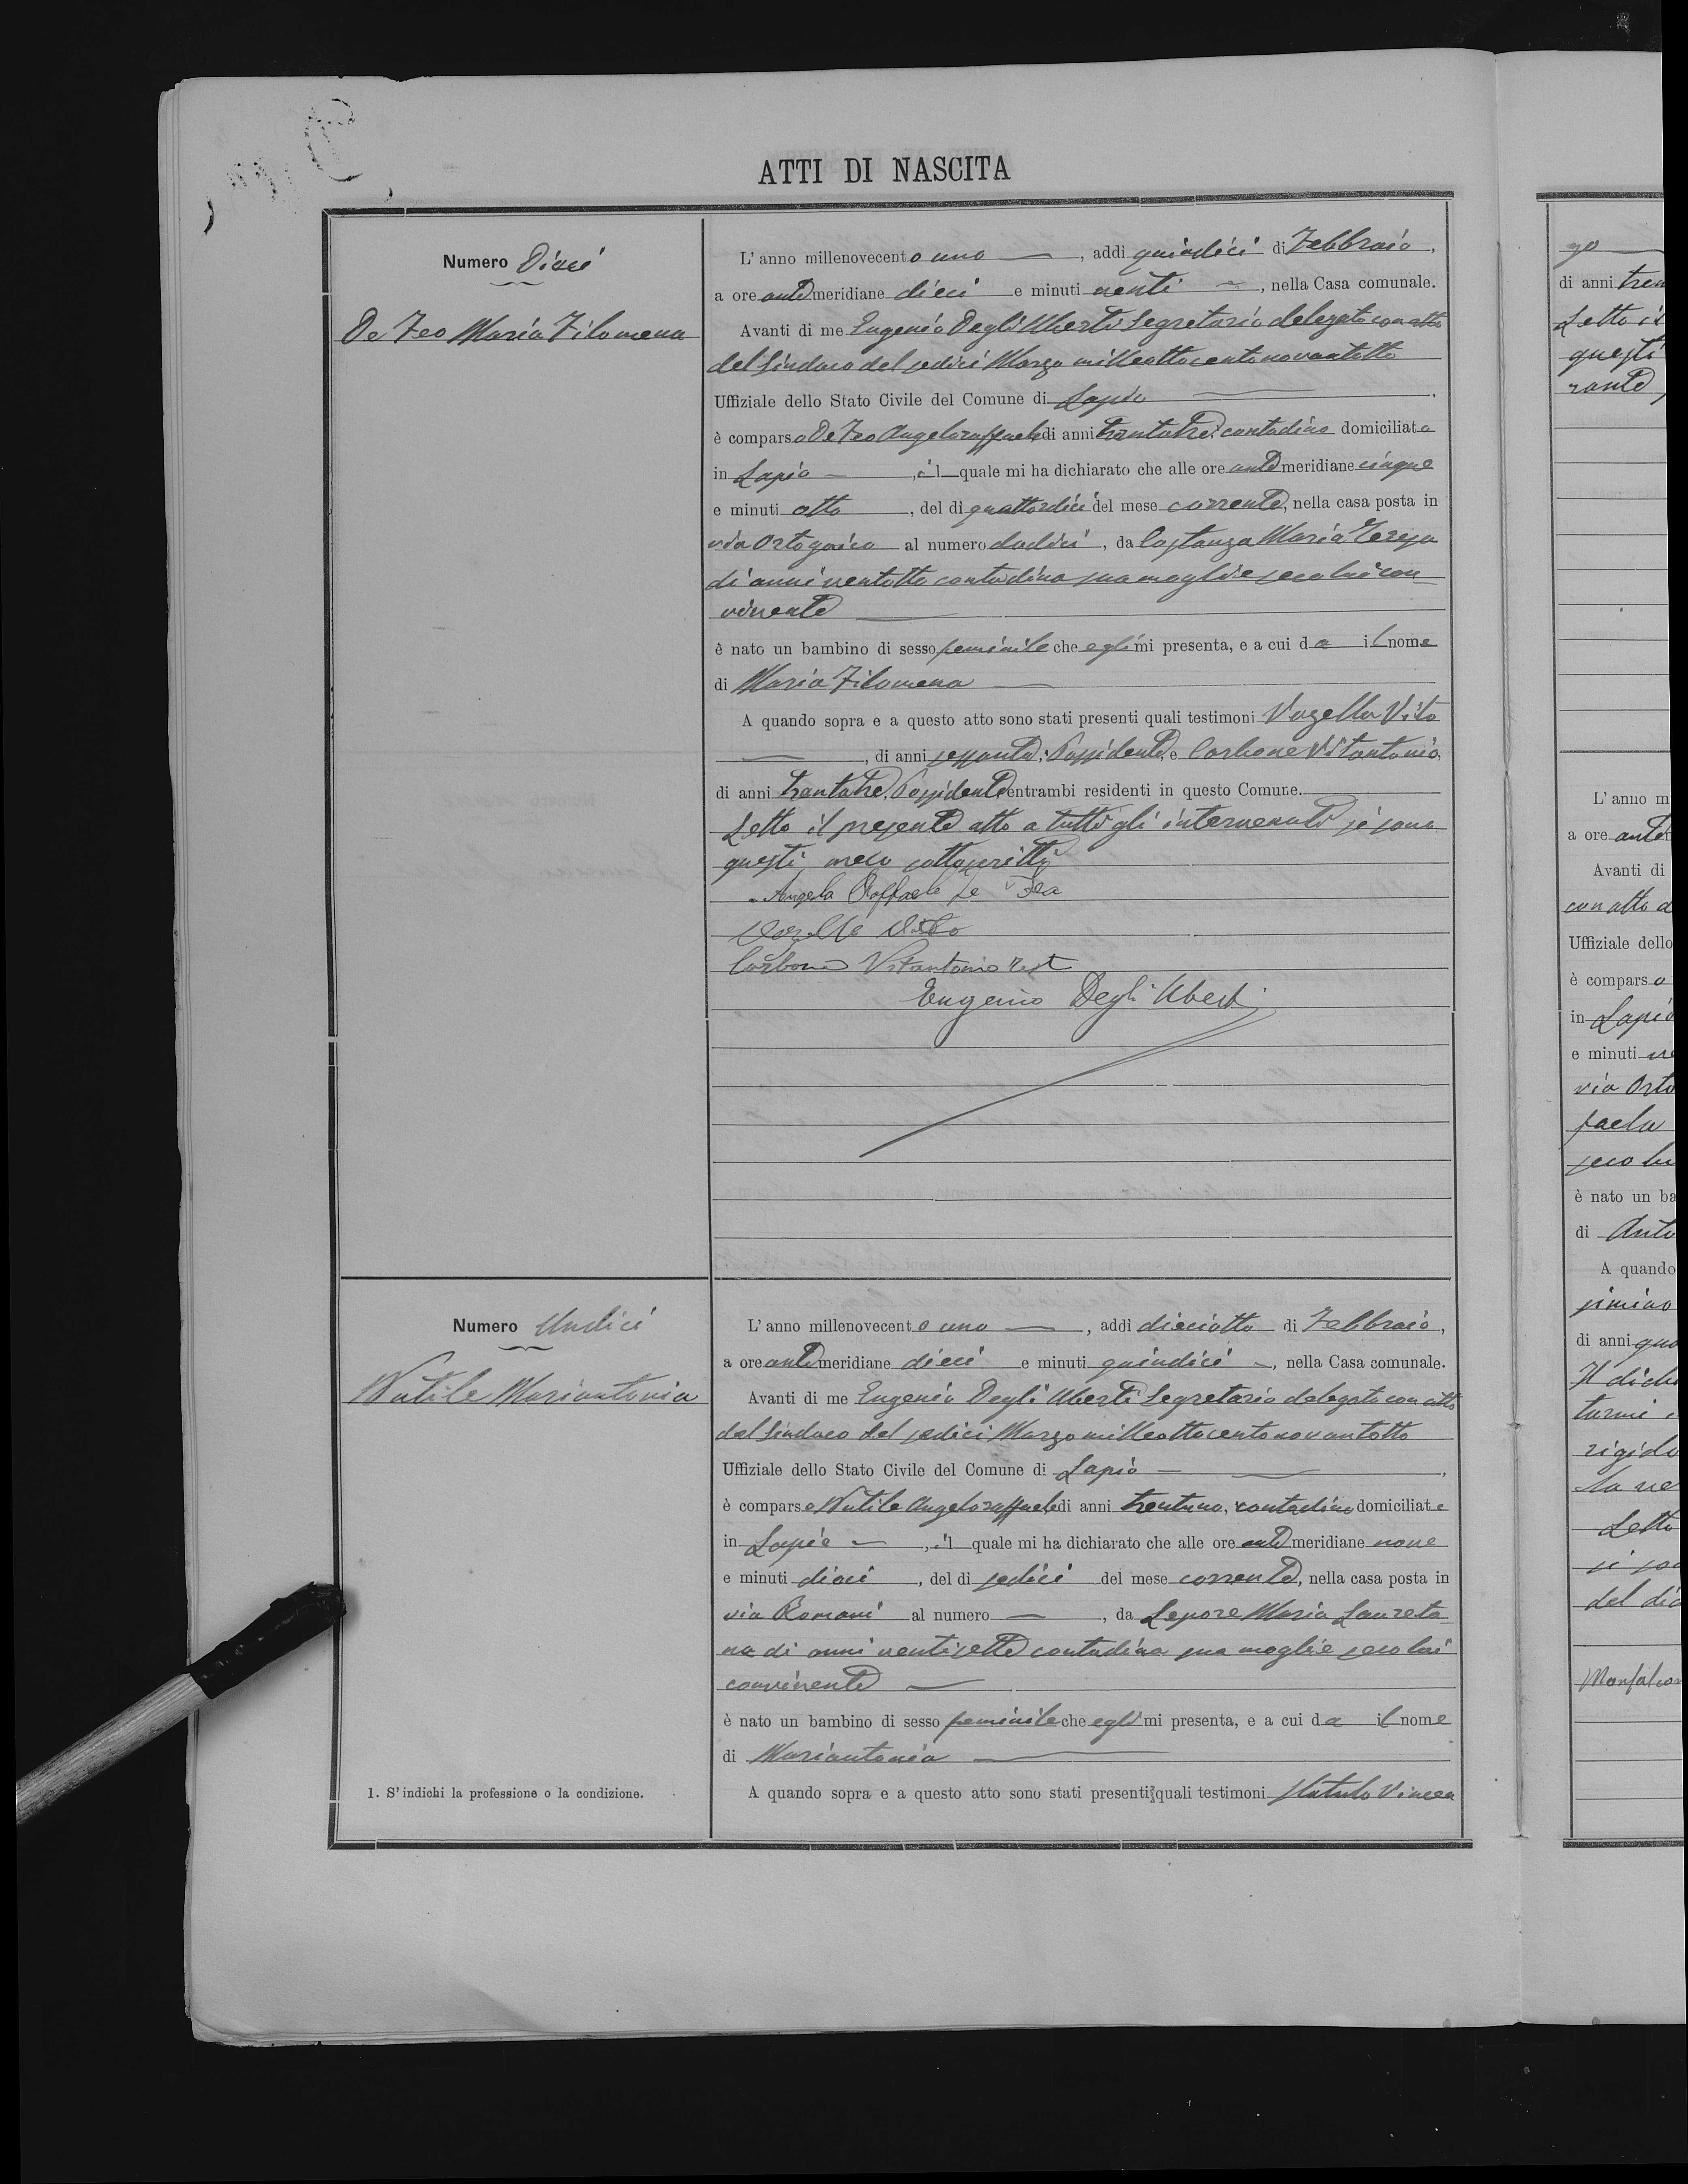 ATTI DI NASCITA
Numero Dieci
De Feo Maria Filomena
L'anno millenovecento uno, addi quindici di Febbraio,
a ore antimeridiane dieci e minuti venti, nella Casa comunale.
Avanti di me Eugenio Degli Uberti Segretario delegato con atto
del Sindaco del sedici Marzo milleottocentonovantotto
Uffiziale dello Stato Civile del Comune di Lapio.
è comparso De Feo Angeloraffaele di anni trentatre, contadino domiciliato
in Lapio, il quale mi ha dichiarato che alle ore antimeridiane cinque
e minuti otto, del dì quattordici del mese corrente, nella casa posta in
via al numero dodici, da Costanza Maria Teresa
di anni ventotto contadina sua moglie seco lui con
vivente
è nato un bambino di sesso feminile che egli mi presenta, e a cui da il nome
di Maria Filomena
A quando sopra e a questo atto sono stati presenti quali testimoni Vozella Vito
, di anni sessanta, Possidente, e Carbone Vitantonio,
di anni trentatre, Possidente entrambi residenti in questo Comune.
Letto il presente atto a tutti gli intervenuti si sono
questi meco sottoscritti
Angelo Raffaele De Feo
Vozella Vito
Carbone Vitantonio test
Eugenio Degli Uberti
Numero Undici
Nutile Mariantonia
L'anno millenovecento uno, addi dieciotto di Febbraio,
a ore antimeridiane dieci e minuti quindici, nella Casa comunale.
Avanti di me Eugenio Degli Uberti Segretario delegato con atto
del Sindaco del sedici Marzo milleottocentonovantotto
Uffiziale dello Stato Civile del Comune di Lapio,
è comparso Nutile Angeloraffaele di anni trentuno, contadino domiciliato
in Lapio, il quale mi ha dichiarato che alle ore antimeridiane nove
e minuti dieci, del dì sedici del mese corrente, nella casa posta in
via Romani al numero, da Lepore Maria Laureta
na di anni ventisette contadina sua moglie seco lui
convivente
è nato un bambino di sesso feminile che egli mi presenta, e a cui da il nome
di Mariantonia
1. S'indichi la professione o la condizione.
A quando sopra e a questo atto sono stati presenti quali testimoni Vincen
go
di anni tren
Letto il
questi
rante
L'anno m
a ore ante
Avanti di
con atto d
Uffiziale dello
è comparso
in Lapio
e minuti ve
via Orto
faela
seco lu
è nato un ba
di Anto
A quando
simino
di anni qua
Il dichi
turmi
rigido
la ne
Letto
si son
del dic
Monfalcon